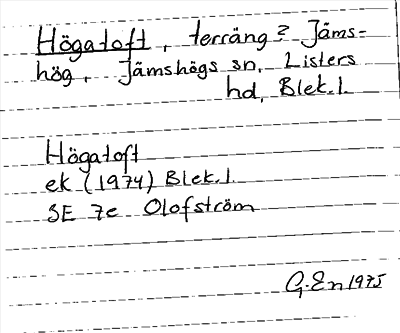 Högatoft, terräng? Jäms-
hög, Jämshögs sn, Listers
hd, Blek.l.
Högatoft
ek (1974) Blek.l
SE 7e Olofström
G.En 1975